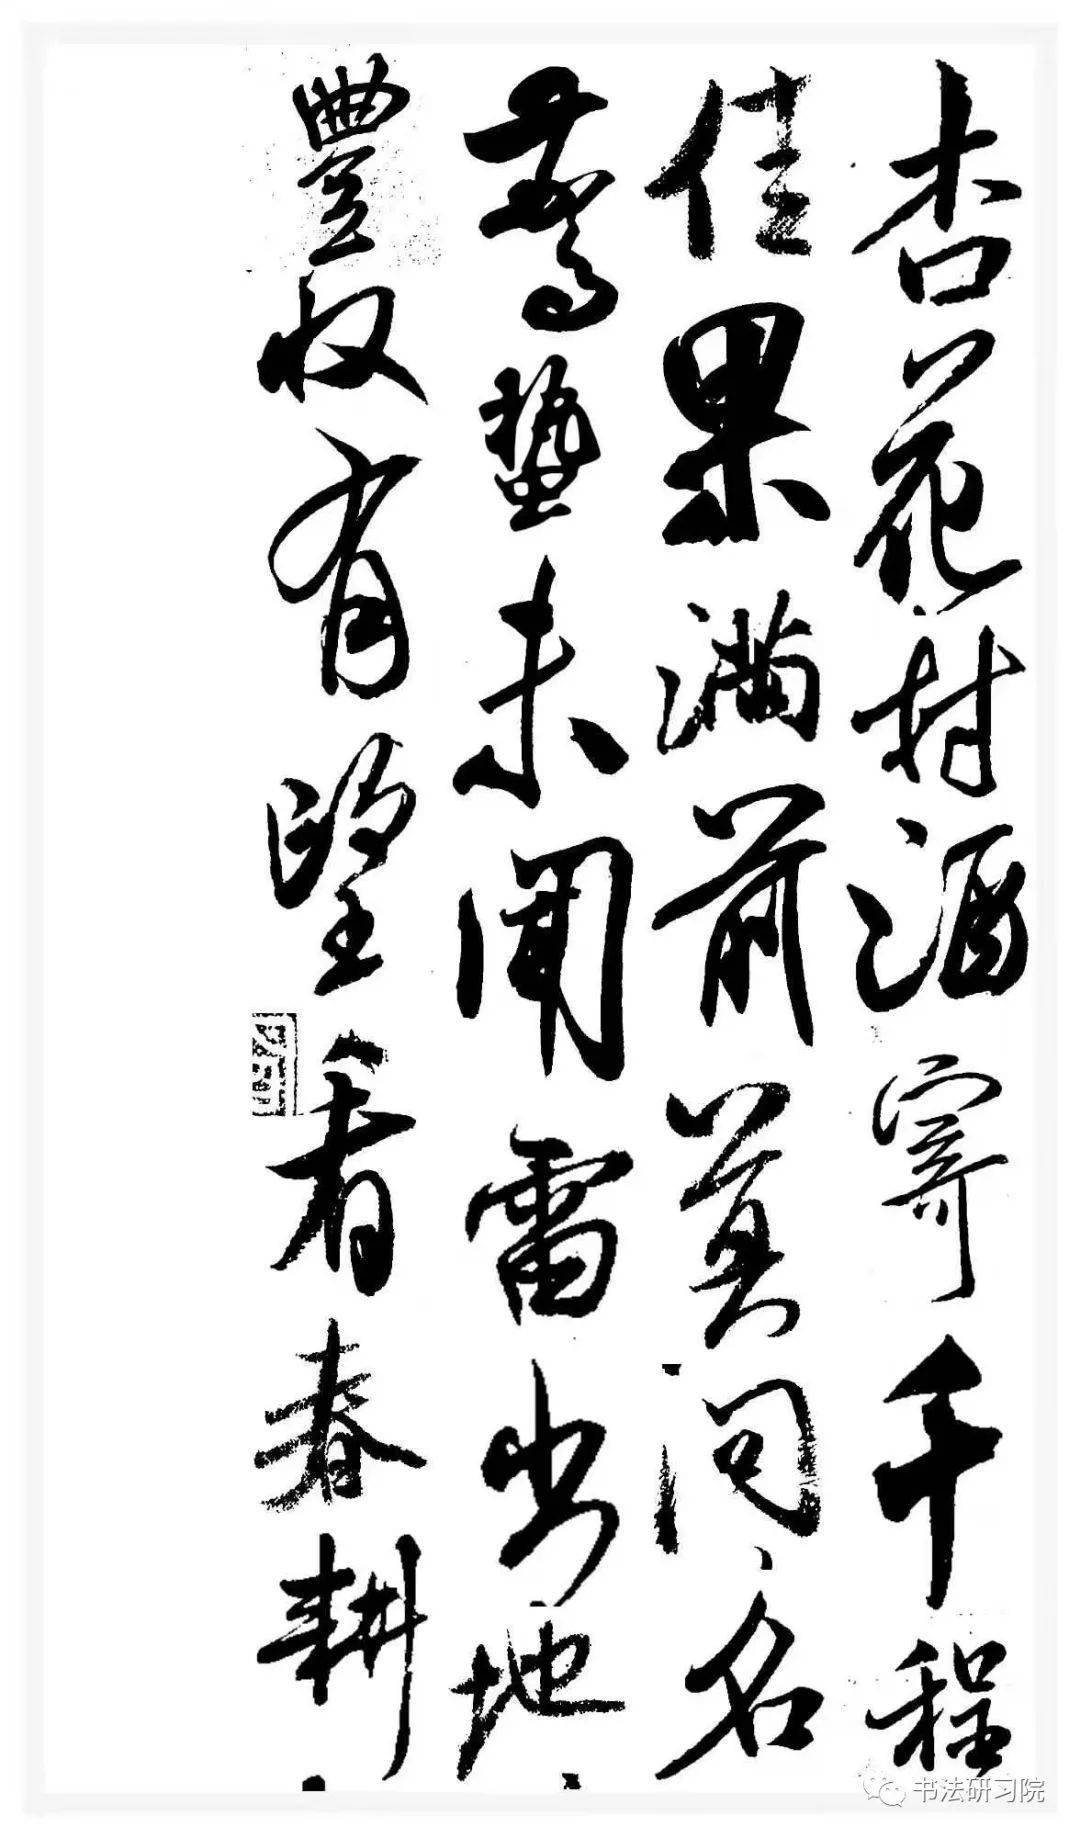 杏花村酒寄千程
佳果满前莫问名
驚蟄未聞雷出地
豐收有望看春耕
书法研习院